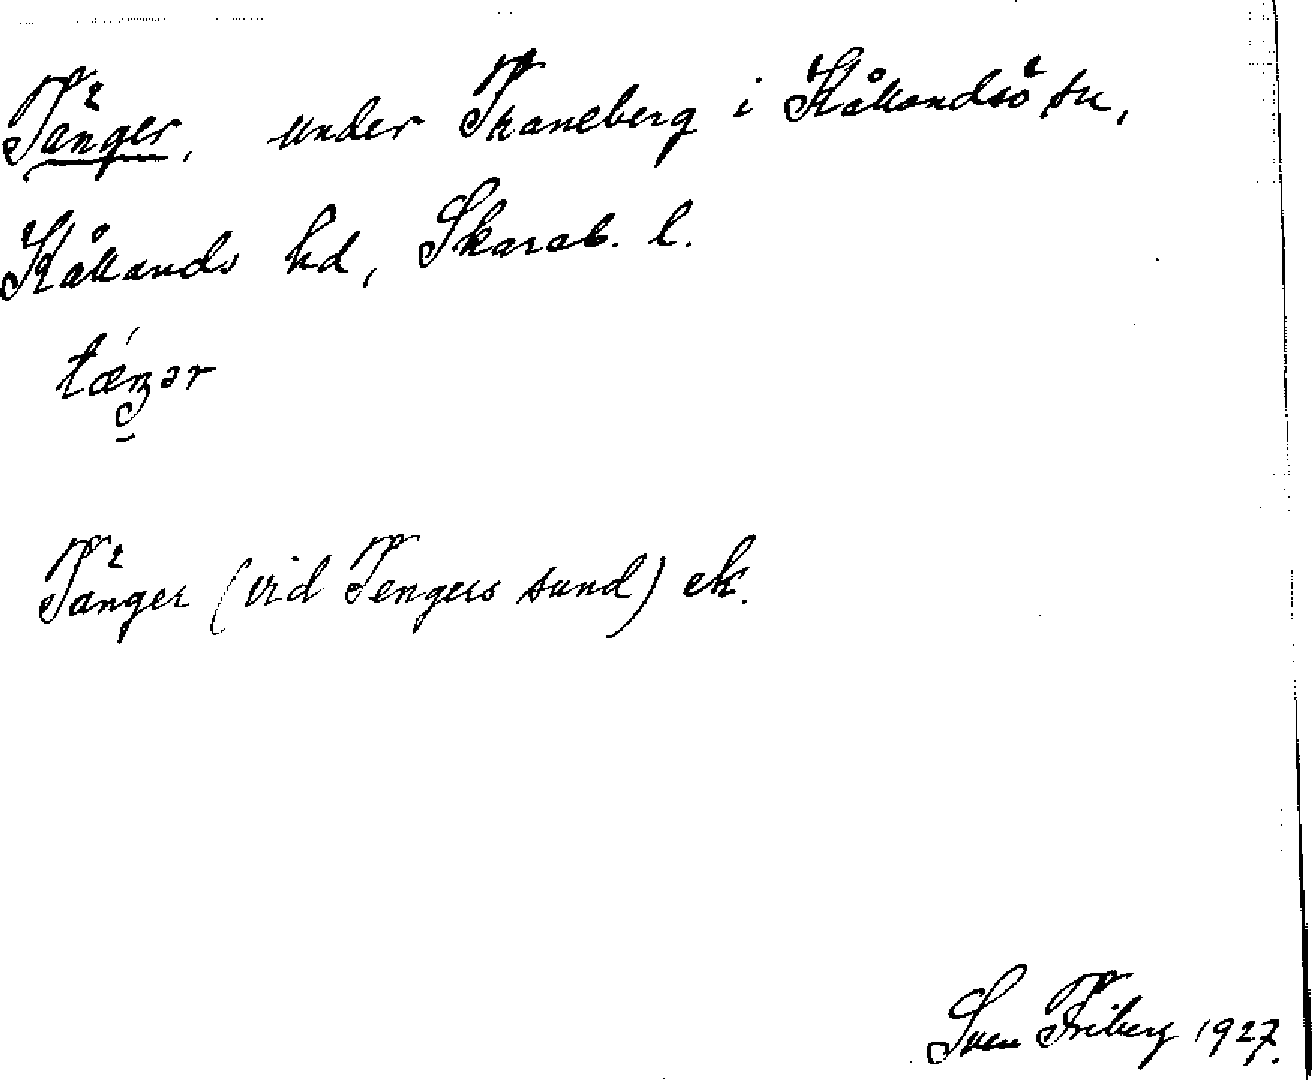 Tänger, under Traneberg i Kållandsö sn,
Kållands hd, Skarab. l.
tǽŋər
Tänger (vid Tengers sund) ek.
Sven Friberg 1927.